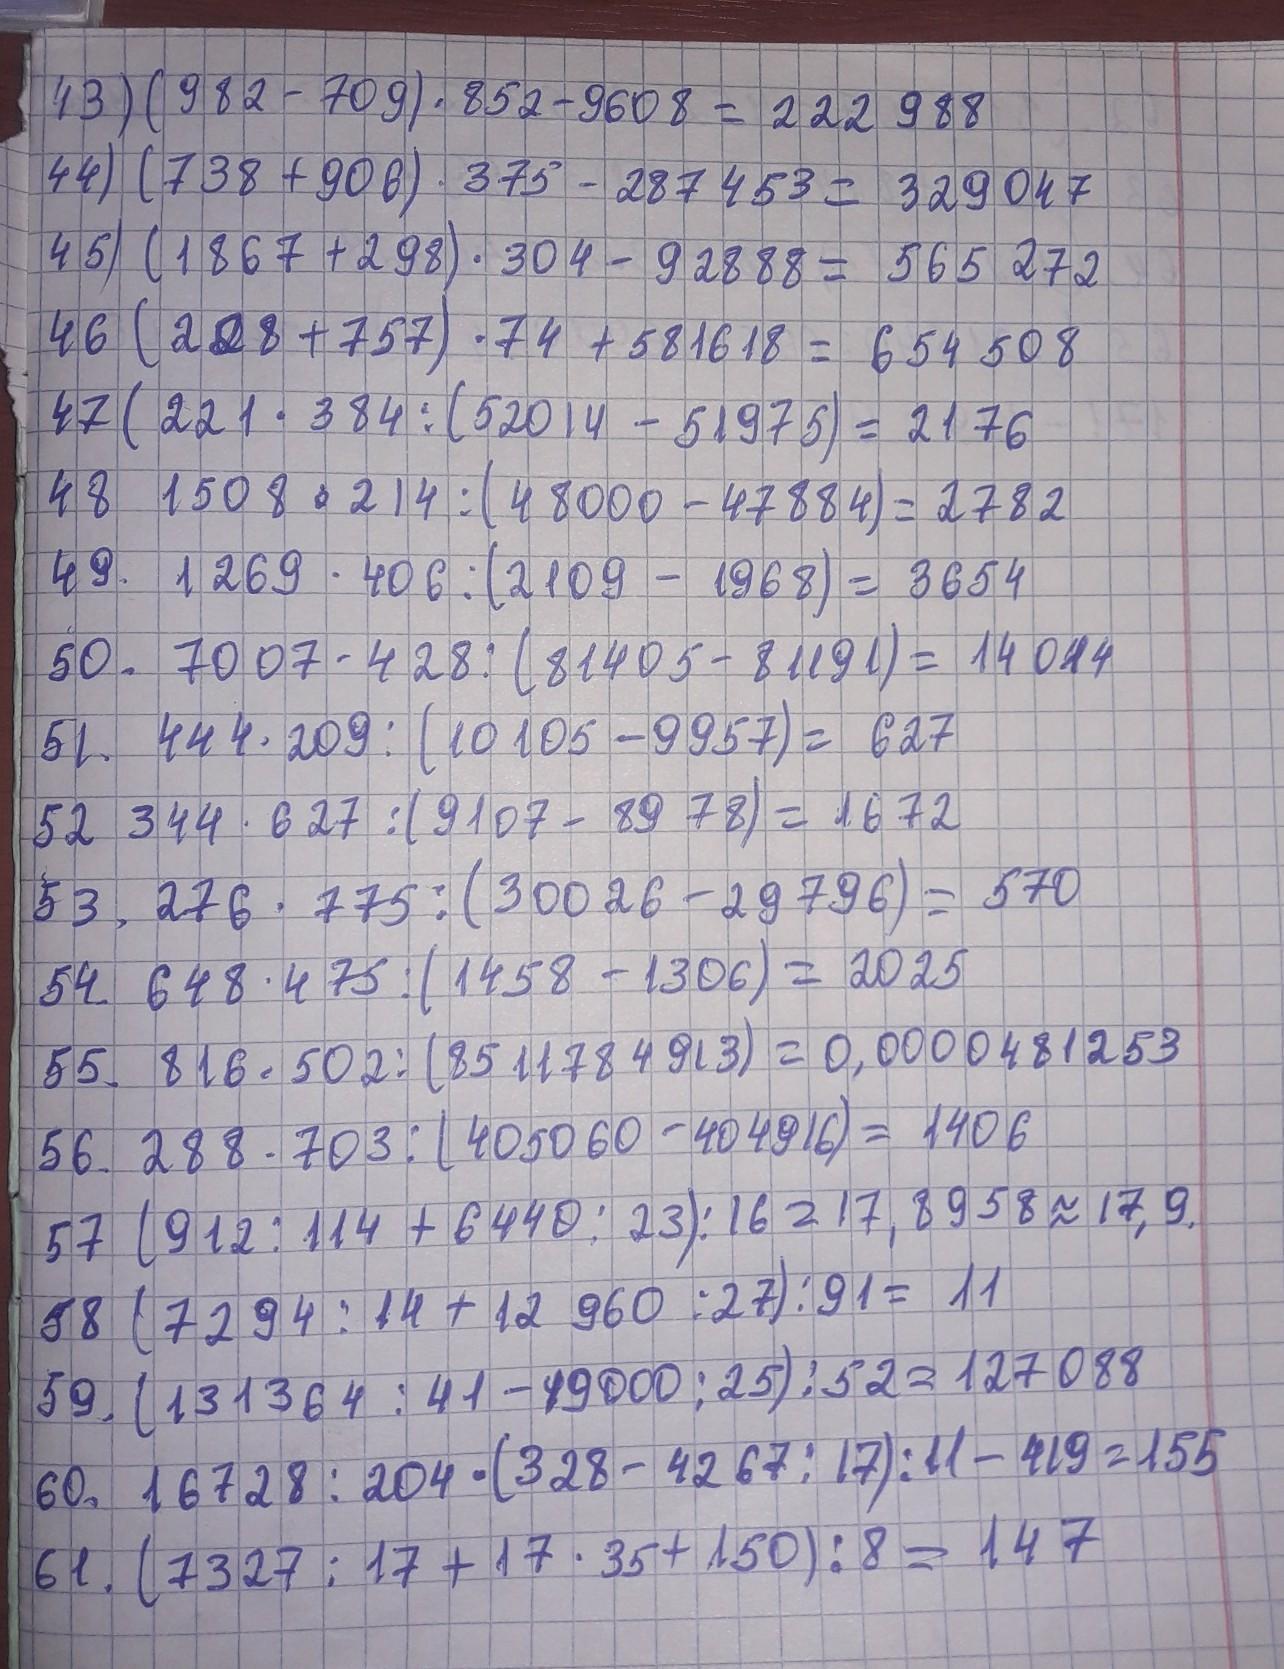 43) (982 - 709) · 852 - 9608 = 222 988
44) (738 + 906) · 375 - 287453 = 329047
45) (1867 + 298) · 304 - 92888 = 565 272
46 (228 + 757) · 74 + 581618 = 654 508
47 ( 221 · 384 : (52014 - 51975) = 2176
48 1508 · 214 : (48000 - 47884) = 2782
49. 1269 · 406 : (2109 - 1968) = 3654
50. 7007 · 428 : (81405 - 81191) = 14014
51. 444 · 209 : (10105 - 9957) = 627
52 344 · 627 : (9107 - 8978) = 1672
53. 276 · 775 : (30026 - 29796) = 570
54. 648 · 475 : (1458 - 1306) = 2025
55. 816 · 502 : (8511784913) = 0,0000481253
56. 288 · 703 : (405060 - 404916) = 1406
57 (912 : 114 + 6440 : 23) : 16 = 17,8958 ≈ 17,9.
58 (7294 : 14 + 12 960 : 27) : 91 = 11
59. (131364 : 41 - 49000 : 25) : 52 = 127088
60. 16728 : 204 · (328 - 4267 : 17) : 11 - 419 = 155
61. (7327 : 17 + 17 · 35 + 150) : 8 = 147